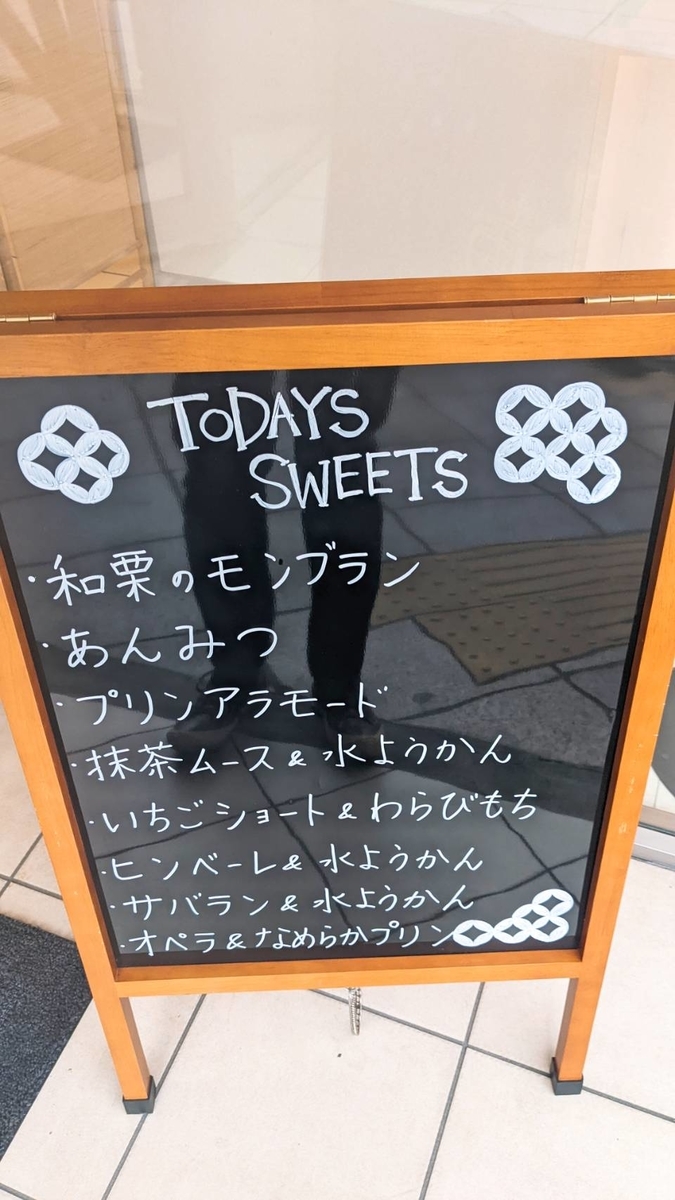 TODAYS
SWEETS
・和栗のモンブラン
・あんみつ
・プリンアラモード
・抹茶ムース&水ようかん
・いちごショート&わらびもち
・ヒンベーレ&水ようかん
・サバラン&水ようかん
・オペラ&なめらかプリン